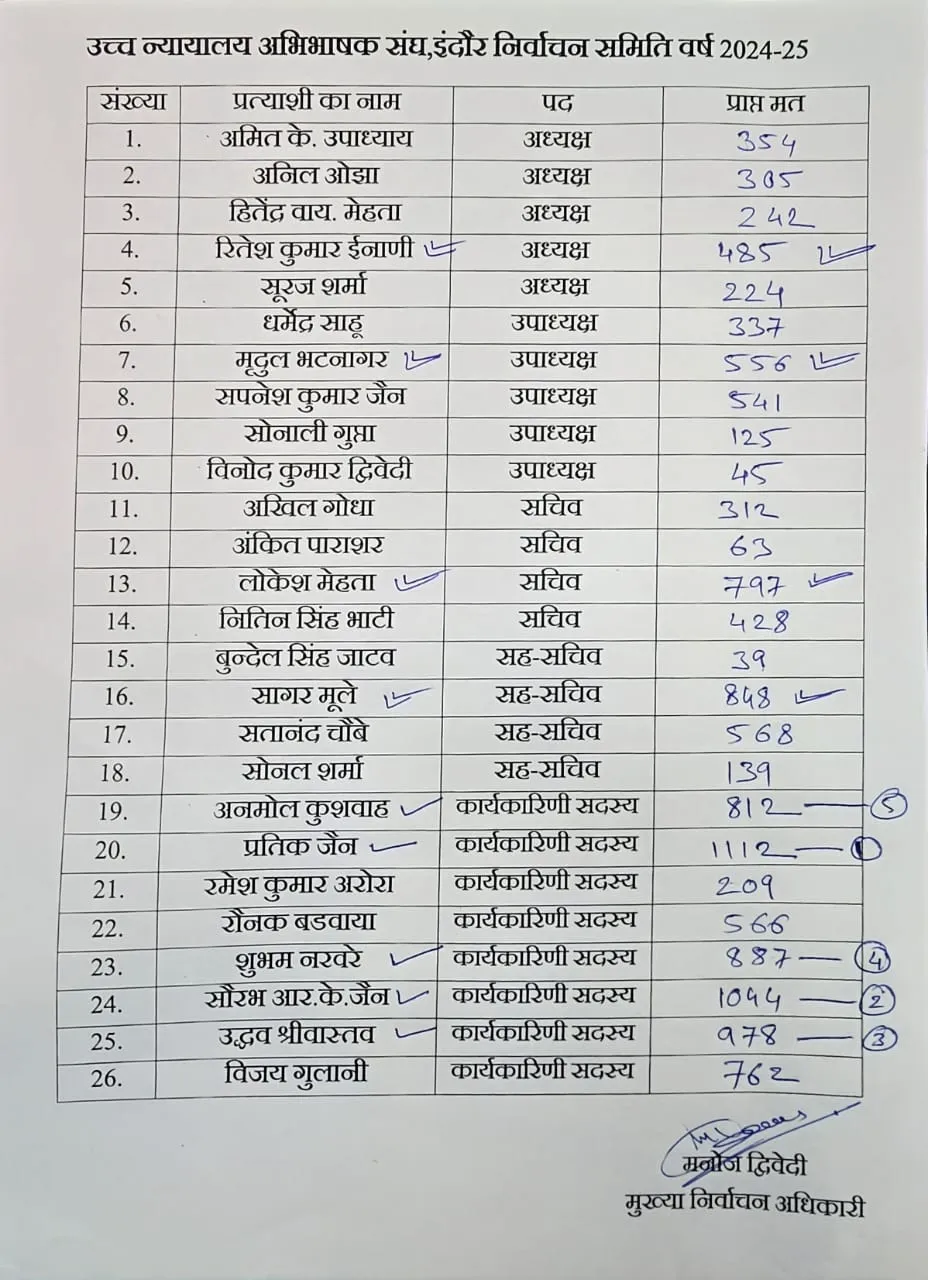 उच्च न्यायालय अभिभाषक संघ,इंदौर निर्वाचन समिति वर्ष 2024-25
संख्या प्रत्याशी का नाम पद प्राप्त मत
1. अमित के. उपाध्याय अध्यक्ष 354
2. अनिल ओझा अध्यक्ष 305
3. हितेंद्र वाय. मेहता अध्यक्ष 242
4. रितेश कुमार ईनाणी अध्यक्ष 485
5. सूरज शर्मा अध्यक्ष 224
6. धर्मेद्र साहू उपाध्यक्ष 337
7. मृदुल भटनागर उपाध्यक्ष 556
8. सपनेश कुमार जैन उपाध्यक्ष 541
9. सोनाली गुप्ता उपाध्यक्ष 125
10. विनोद कुमार द्विवेदी उपाध्यक्ष 45
11. अखिल गोधा सचिव 312
12. अंकित पाराशर सचिव 63
13. लोकेश मेहता सचिव 797
14. नितिन सिंह भाटी सचिव 428
15. बुन्देल सिंह जाटव सह-सचिव 39
16. सागर मूले सह-सचिव 848
17. सतानंद चौबे सह-सचिव 568
18. सोनल शर्मा सह-सचिव 139
19. अनमोल कुशवाह कार्यकारिणी सदस्य 812 5
20. प्रतिक जैन कार्यकारिणी सदस्य 1112 1
21. रमेश कुमार अरोरा कार्यकारिणी सदस्य 209
22. रौनक बडवाया कार्यकारिणी सदस्य 566
23. शुभम नरवरे कार्यकारिणी सदस्य 887 4
24. सौरभ आर.के.जैन कार्यकारिणी सदस्य 1044 2
25. उद्धव श्रीवास्तव कार्यकारिणी सदस्य 978 3
26. विजय गुलानी कार्यकारिणी सदस्य 762
मनोज द्विवेदी
मुख्या निर्वाचन अधिकारी